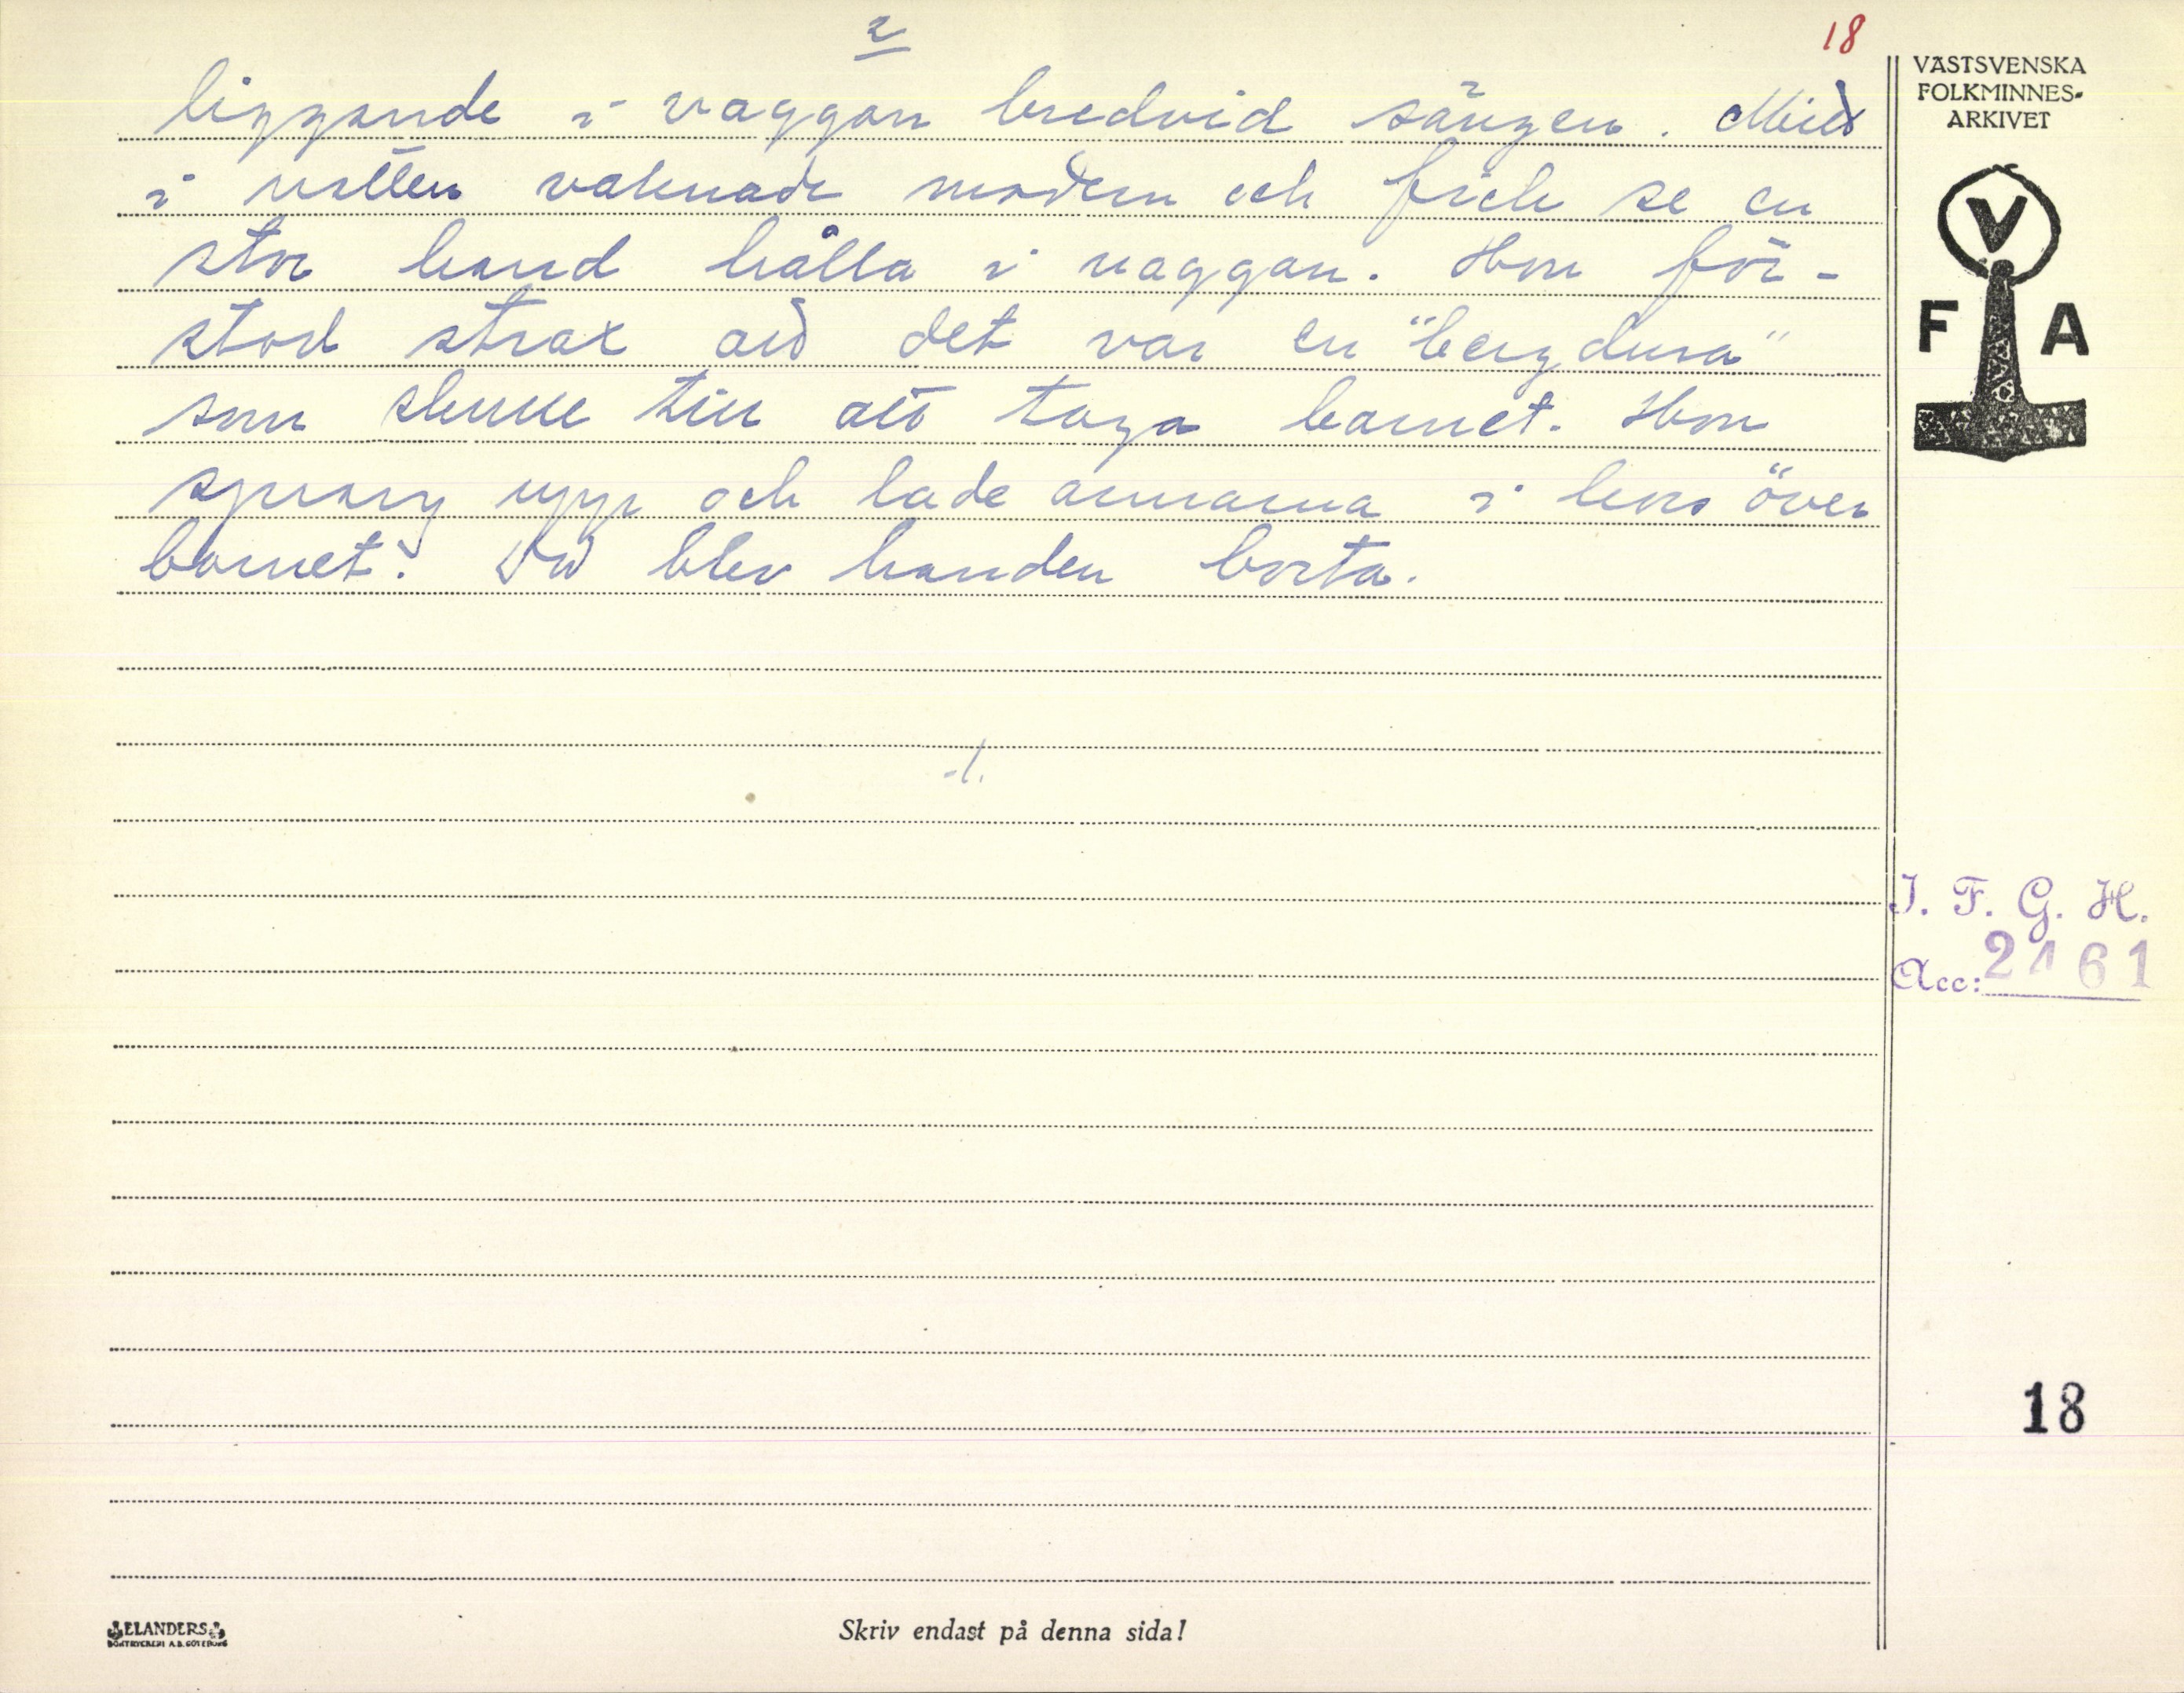 2
18
liggande i vaggan bredvid sängen. Mitt
i natten vaknade modern och fick se en
stor hand hålla i vaggan. Hon för-
stod strax att det var en "bergdura"
som skulle till att taga barnet. Hon
sprang upp och lade armarna i kors över
barnet. Då blev handen borta.
-/.
VÄSTSVENSKA
FOLKMINNES-
ARKIVET
V
F A
I. F. G. H.
Acc: 2161
18
ELANDERS
BOKTRYCKERI A.B. GÖTEBORG
Skriv endast på denna sida!